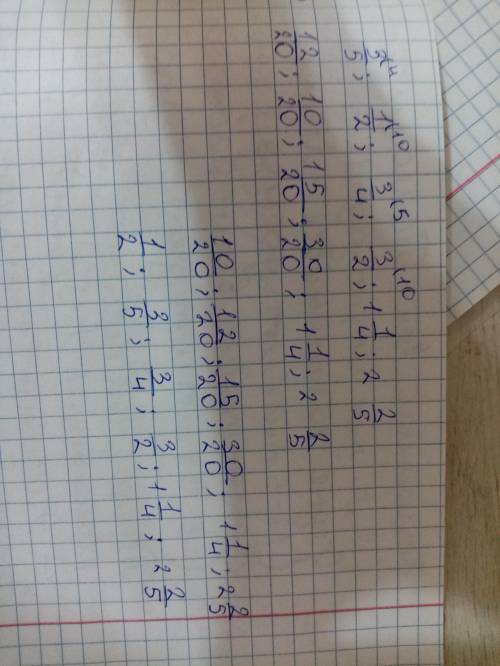 3/5⁴; 1/2¹⁰; 3/4⁵; 3/2¹⁰; 1 1/4; 2 2/5
12/20; 10/20; 15/20; 30/20; 1 1/4; 2 2/5
10/20; 12/20; 15/20; 30/20; 1 1/4; 2 2/5
1/2; 3/5; 3/4; 3/2; 1 1/4; 2 2/5